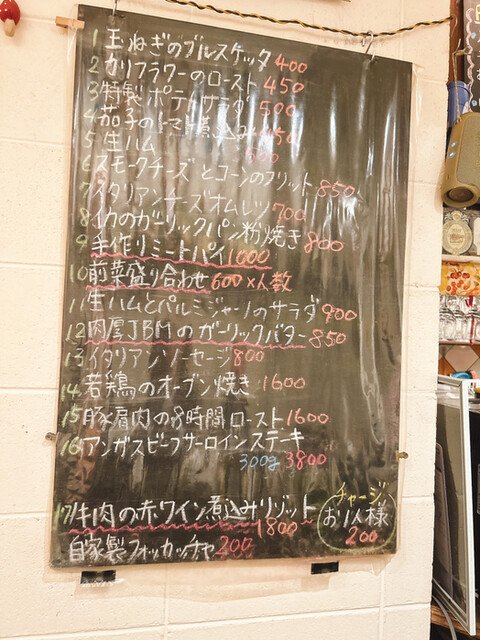 1 玉ねぎのブルスケッタ 400
2 カリフラワーのロースト 450
3 特製ポテトサラダ 500
4 茄子のトマト煮込み 450
5 生ハム
6 スモークチーズとコーンのフリット 850
7 イタリアンチーズオムレツ 700
8 イカのガーリックパン粉焼き 800
9 手作りミートパイ 1000
10 前菜盛り合わせ 600×人数
11 生ハムとパルミジャーノのサラダ 900
12 肉厚JBMのガーリックバター 850
13 イタリアンソーセージ 800
14 若鶏のオーブン焼き 1600
15 豚肩肉の8時間ロースト 1600
16 アンガスビーフサーロインステーキ
300g 3800
17 牛肉の赤ワイン煮込みリゾット
1800
自家製フォッカッチャ 200
チャージ
お1人様
200